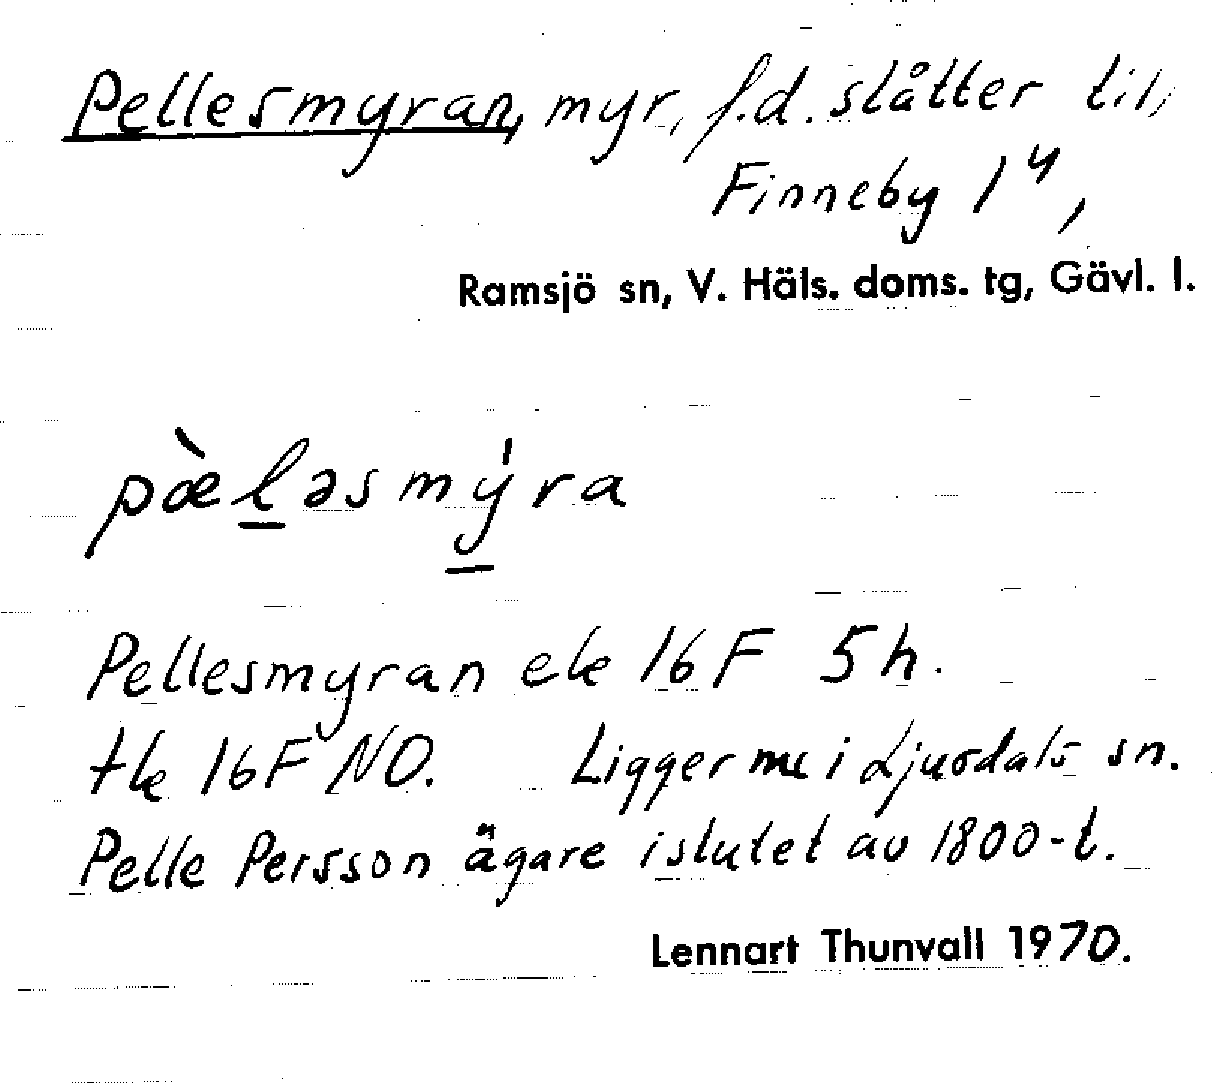 Pellesmyran, myr, f.d. slåtter till
Finneby 1⁴,
Ramsjö sn, V. Häls. doms. tg, Gävl. l.
pæ̀ləsmýra
Pellesmyran ek 16F 5h.
tk 16F NO. Ligger nu i Ljusdals sn.
Pelle Persson ägare i slutet av 1800-t.
Lennart Thunvall 1970.